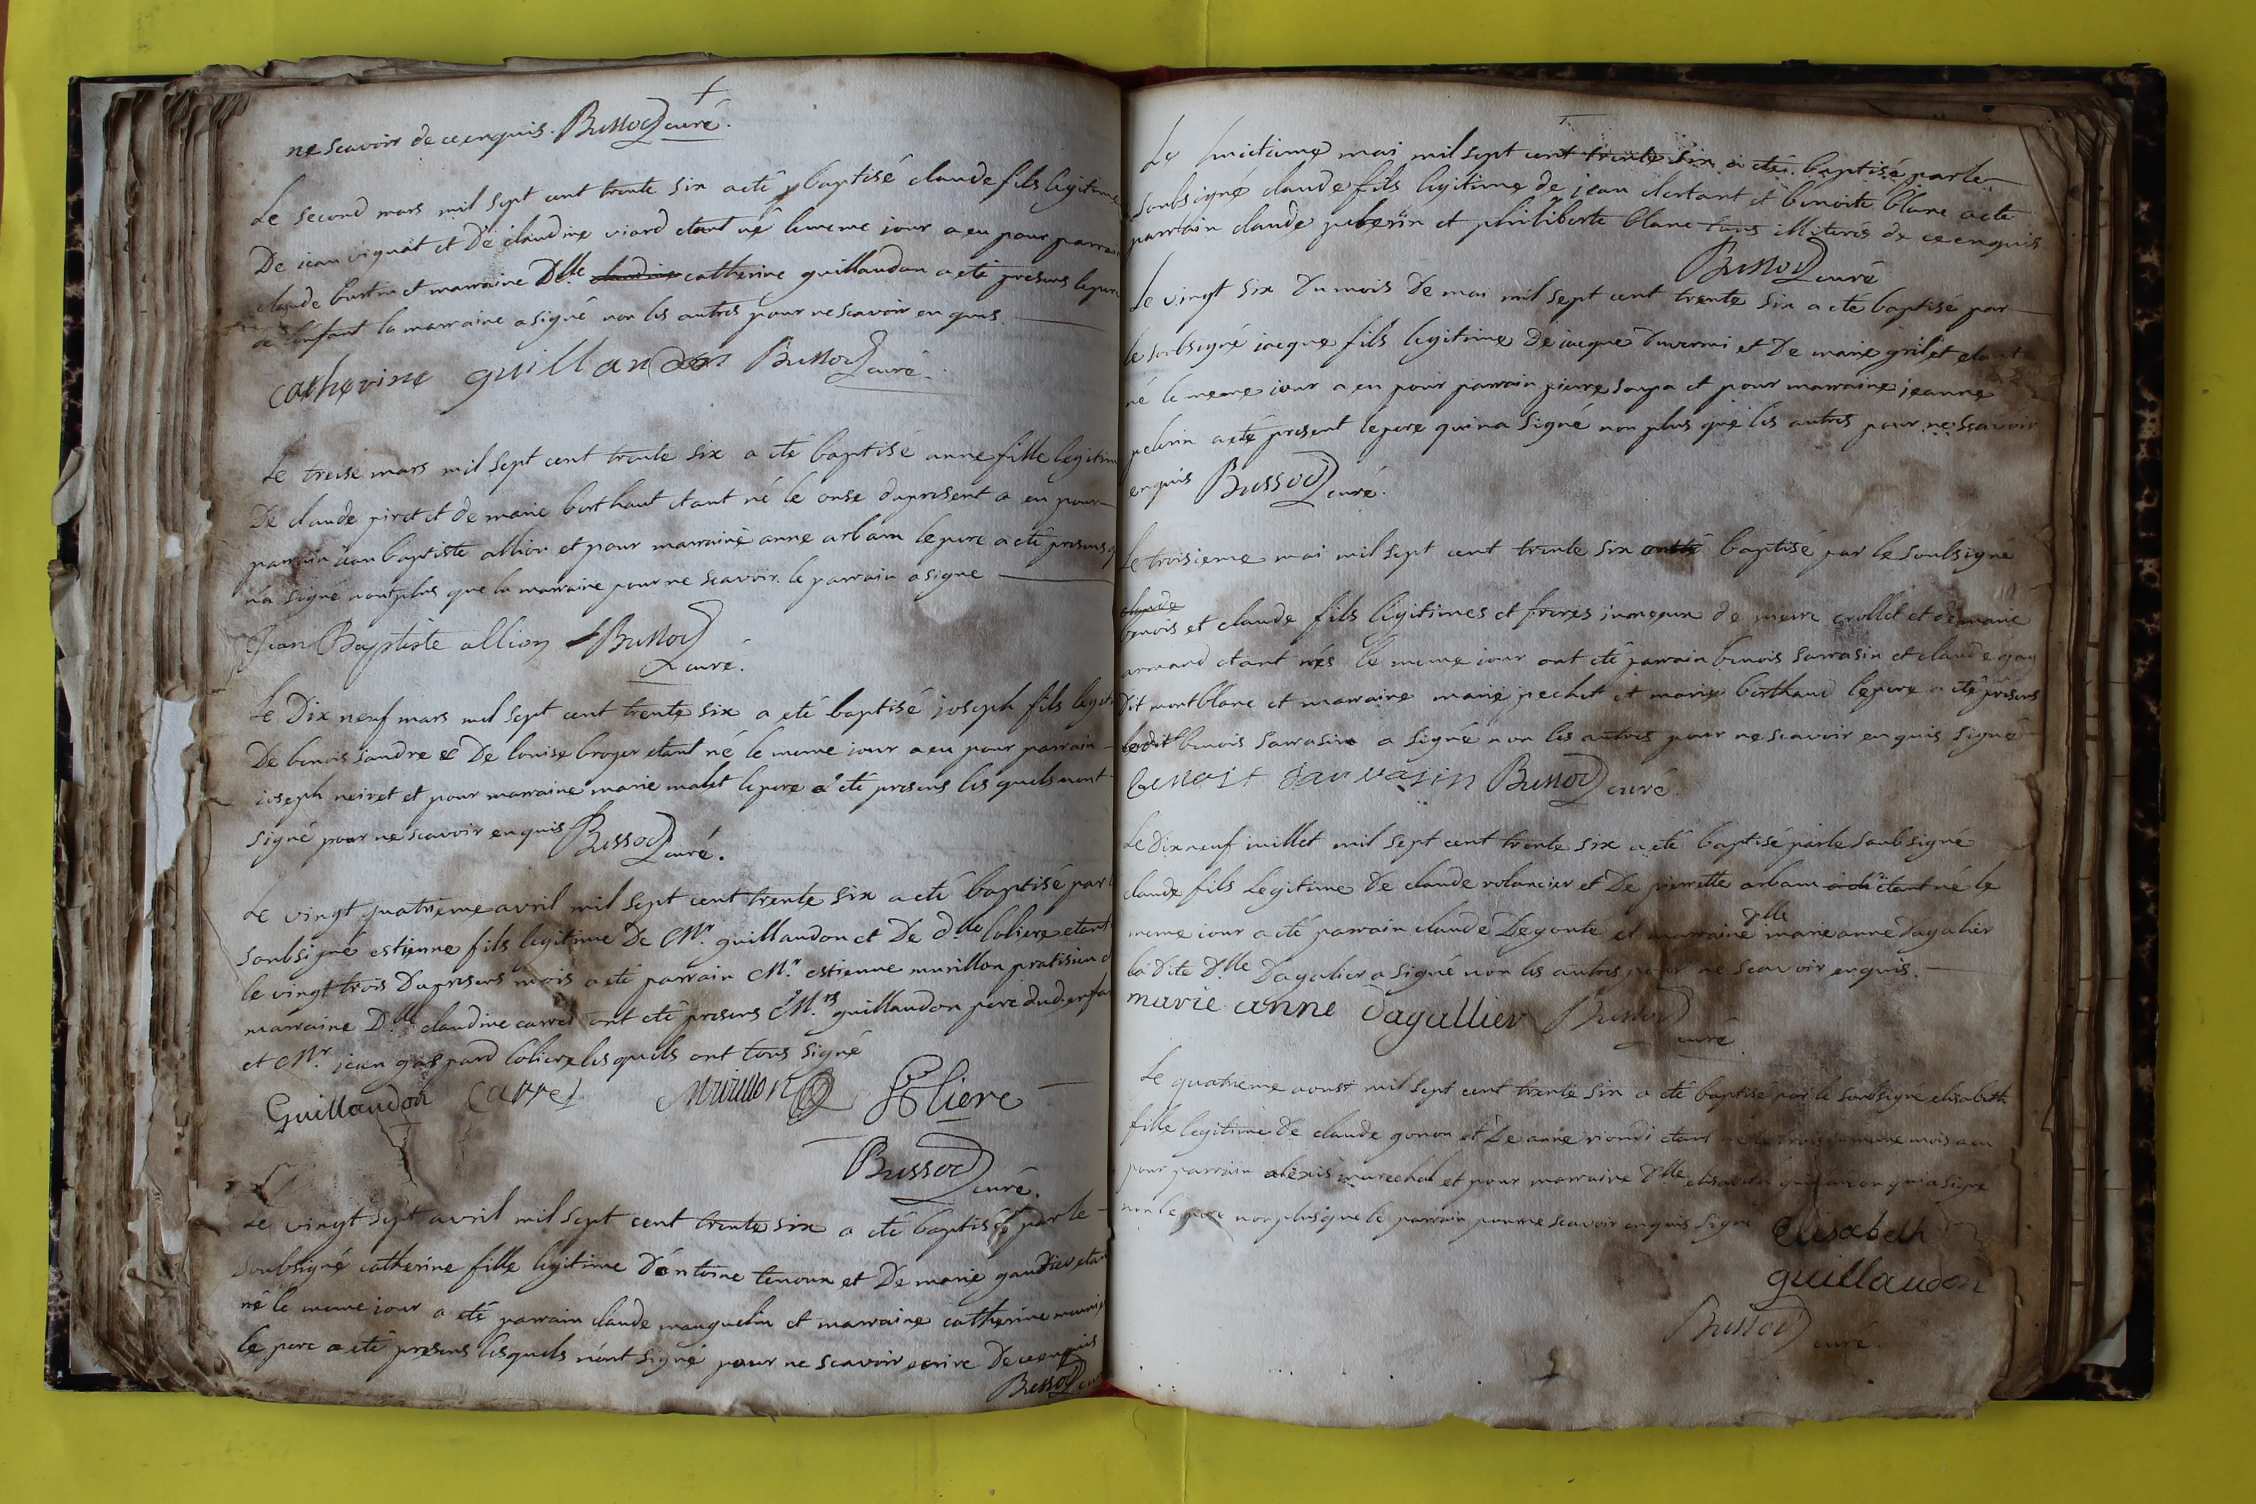 ne scavoir de ce enquis. Bussod curé.
Le second mars mil sept cent trente six a eté baptisé claude fils legitime
De jean vignat et De claudine viard etant né le meme jour a eu pour parrain
claude burtin et marraine Dlle claudine catherine guillaudon a eté presens le pere
de l'enfant la marraine a signé non les autres pour ne scavoir en quis
catherine guillaudon Bussod curé.
Le treise mars mil sept cent trente six a eté baptisé anne fille legitim
De claude piret et de marie berthaut etant né le onse du present a eu pour
parrain jean baptiste allion et pour marraine anne arbain le pere a eté presens q
n'a signé non plus que la marraine pour ne scavoir. le parrain a signe
Jean Baptiste allion Bussod
curé.
Le Dix neuf mars mil sept cent trente six a eté baptisé joseph fils legit
De benois sandre et De louise broyer etant né le meme jour a eu pour parrain
joseph neiret et pour marraine marie malet le pere a eté presens les quels n'ont
signé pour ne scavoir en quis Bussod curé.
Le vingt quatrieme avril mil sept cent trente six a eté baptisé par l
soubsigné estienne fils legitime De Mr. guillaudon et De dlle loliere etant
le vingt trois Du presens mois a eté parrain Mr. estienne murillon pratisien
marraine Dlle claudine carret ont eté presens Mrs guillaudon pere dud. enfa
et Mr. jean gaspard loliere les quels ont tous signé
Guillaudon Carret Murillon Loliere
Bussod curé.
Le vingt sept avril mil sept cent trente six a eté baptisé par le
soubsigné catherine fille legitime D'entoine tenoux et De marie gaudier etan
né le meme jour a eté parrain claude manguelin et marraine catherine
le pere a eté presens les quels n'ont signé pour ne scavoir ecrire De ce enquis
Bussod cu
Le huictieme mai mil sept cent trente six a eté baptisé par le
soubsigné claude fils legitime de jean clertant et benoite blanc a eté
parrain claude et philiberte blanc tous illiterés de ce enquis
Bussod curé
Le vingt six Du mois De mai mil sept cent trente six a eté baptisé par
le soubsigné jacque fils legitime De jacque Duvermi et De marie grilet etant
né le meme jour a eu pour parrain pierre soupa et pour marraine jeanne
pelerin a eté present le pere qui n'a signé non plus que les autres pour ne scavoir
enquis Bussod curé.
Le troisieme mai mil sept cent trente six ont eté baptisé par le soubsigné
claude
benois et claude fils legitimes et freres jumeaux de pierre crollet et de marie
armand etant nés le meme jour ont eté parrain benois sarrasin et claude gay
dit montblanc et marraine marie pechet et marie berthaud le pere a eté presens
ledit benois sarrasin a signé non les autres pour ne scavoir enquis signé
benoist sarrasin Bussod curé.
Le Dix neuf juillet mil sept cent trente six a eté baptisé par le soubsigné
claude fils Legitime De claude volancier et De pierrette arbain a eté etant né le
meme jour a eté parrain claude Degoute et marraine dlle marie anne Dagalier
la Dite Dlle Dagalier a signé non les autres pour ne scavoir enquis.
marie anne dagallier Bussod
curé
Le quatrieme aoust mil sept cent trente six a eté baptisé par le soubsigne elisabeth
fille legitime de claude gonon et De anne riondi etant né le trois du meme mois a eu
pour parrain alexis marechal et pour marraine dlle elisabeth guillaudon qui a signe
non le pere non plus que le parrain pour ne scavoir enquis signé Elisabeth
guillaudon
Bussod curé.